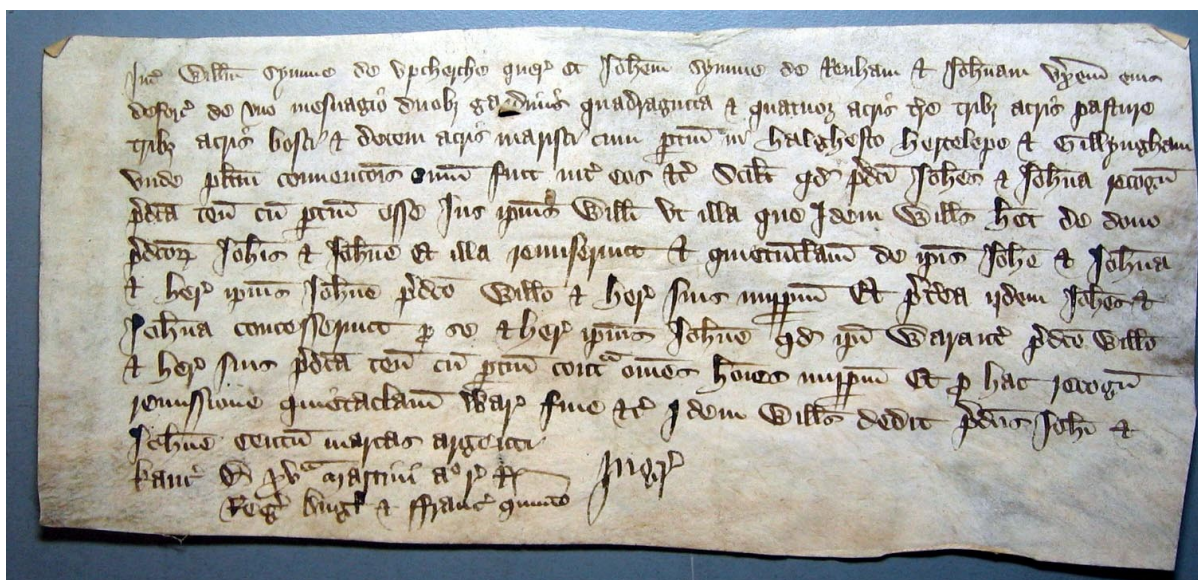 Int' Willm Symme de Upcherche quer' et Joh'em Symme de Renham & Joh'nam ux'em eius
defor' de uno mesuagio duob3 gardinis quadraginta & quatuor acris t're trib3 acris pasture
trib3 acris bosci & decem acris marisci cum p'tin' in Halghesto Hertelepe & Gillyngham
unde pl'itm convencois sum' fuit int' eos &c' Scil't qd p'd'ci Joh'es & Joh'na recogn'
p'd'ca ten' cu' p'tin' esse Jus ipius Willi ut illa que Idem Wills h'et de dono
p'd'cor' Joh'is & Joh'ne Et illa remiserunt & quietu'clam' de ip'is Joh'e & Joh'na
& her' ipius Joh'ne p'd'co Willo & her' suis imp'p'm Et p't'ea ijdem Joh'es &
Joh'na concesserunt p' se & her' ipius Joh'ne qd ip'i Warant' p'd'co Willo
& her' suis p'd'ca ten' cu' p'tin' cont'a om'es ho'ies imp'p'm Et p' hac recogn'
remissione quietaclam' War' fine &c' Idem Wills dedit p'd'cis Joh'i &
Joh'ne centu' marcas argenti
Kanc' martini a° r' R
Reg' Angl' & ffranc' quinto